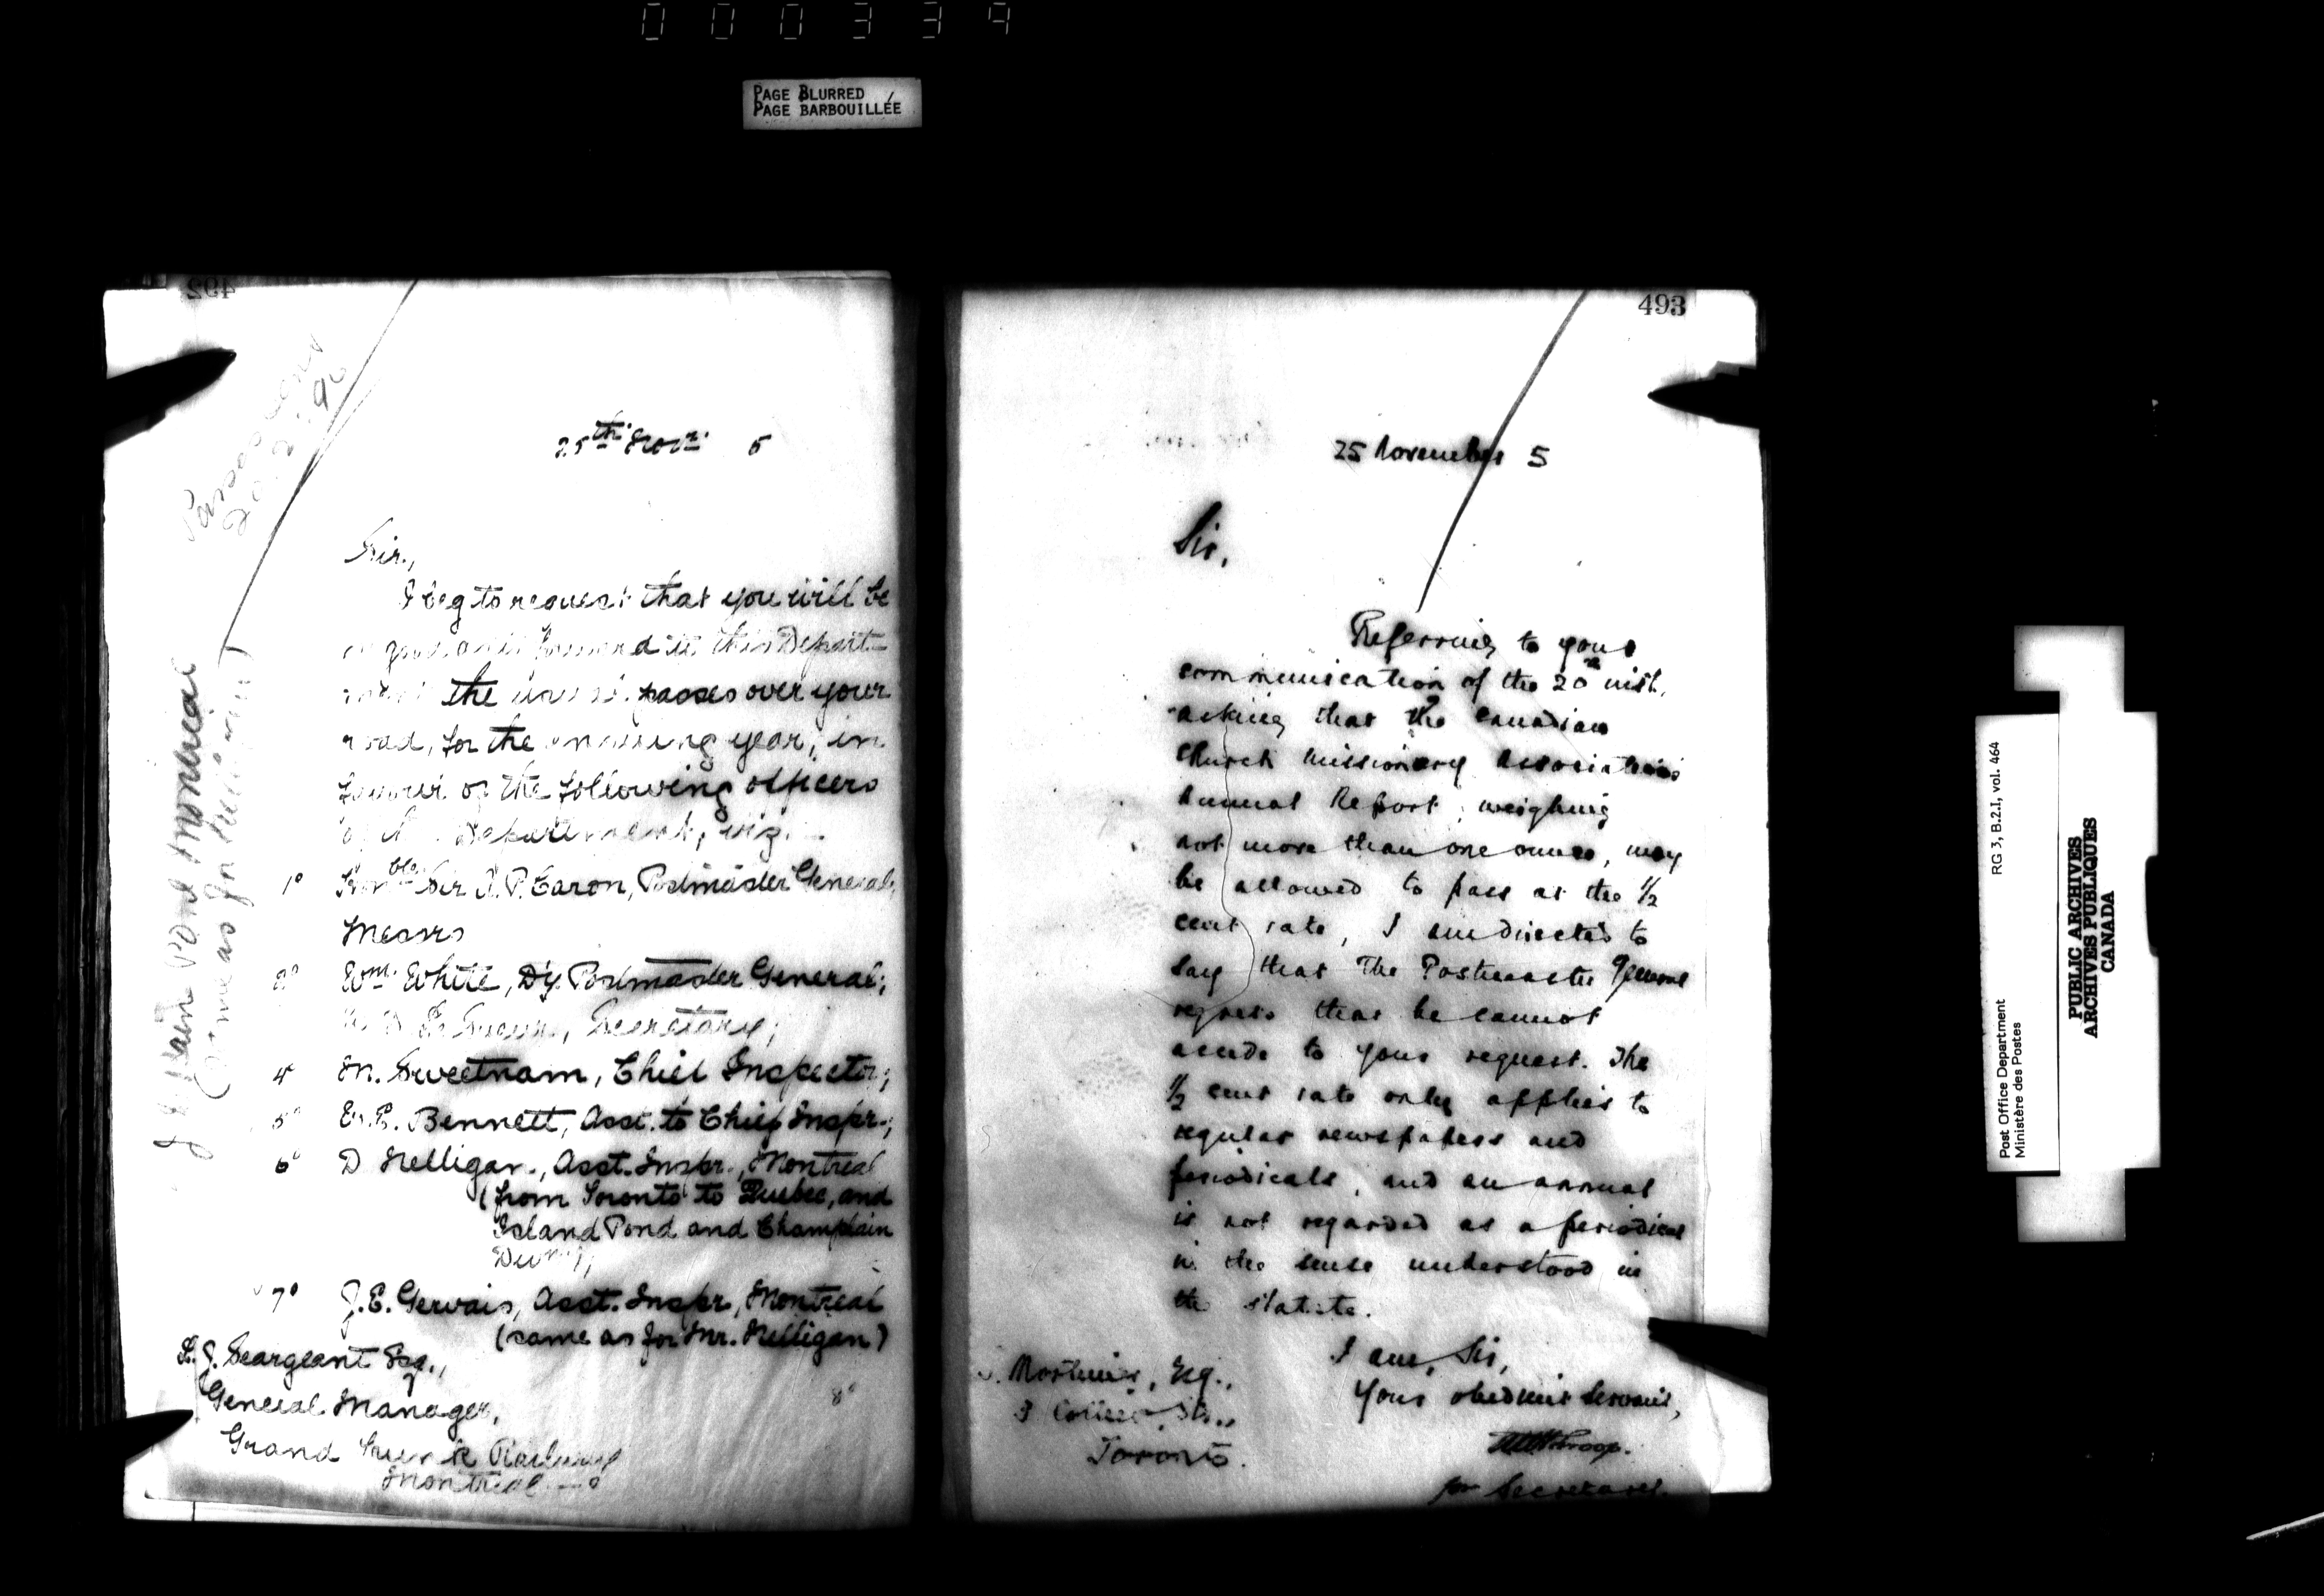 000339
PAGE BLURRED
PAGE BARBOUILLÉE
492
25th Novr. 5
Sir,
I beg to request that you will be
so good as to forward to this Depart-
ment the usual passes over your
road, for the ensuing year, in
favour of the following officers
of the Department, viz:
1° Honble Sir A. P. Caron, Postmaster General;
Messrs
2° Wm. White, Dy. Postmaster General;
W. D. LeSueur, Secretary;
4° M. Sweetnam, Chief Inspector;
5° E. Bennett, Asst. to Chief Inspr.;
6° D Nelligan, Asst. Inspr., Montreal
(from Toronto to Quebec, and
Island Pond and Champlain
Divns);
7° J. E. Gervais, Asst. Inspr., Montreal
(same as for Mr. Nelligan)
8°
L. J. Seargeant Esq.,
General Manager,
Grand Trunk Railway
Montreal
493
25 November 5
Sir,
Referring to your
communication of the 20th inst.
asking that the Canadian
Church Missionary Association's
Annual Report, weighing
not more than one ounce, may
be allowed to pass at the 1/2
cent rate, I am directed to
say that The Postmaster General
regrets that he cannot
accede to your request. The
1/2 cent rate only applies to
regular newspapers and
periodicals, and an annual
is not regarded as a periodical
in the sense understood in
the statute.
I am, Sir,
Your obedient Servant,
for Secretary.
Mortimer, Esq.,
3 College St.,
Toronto.
RG 3, B.2.1, vol. 464
Post Office Department
Ministère des Postes
PUBLIC ARCHIVES
ARCHIVES PUBLIQUES
CANADA